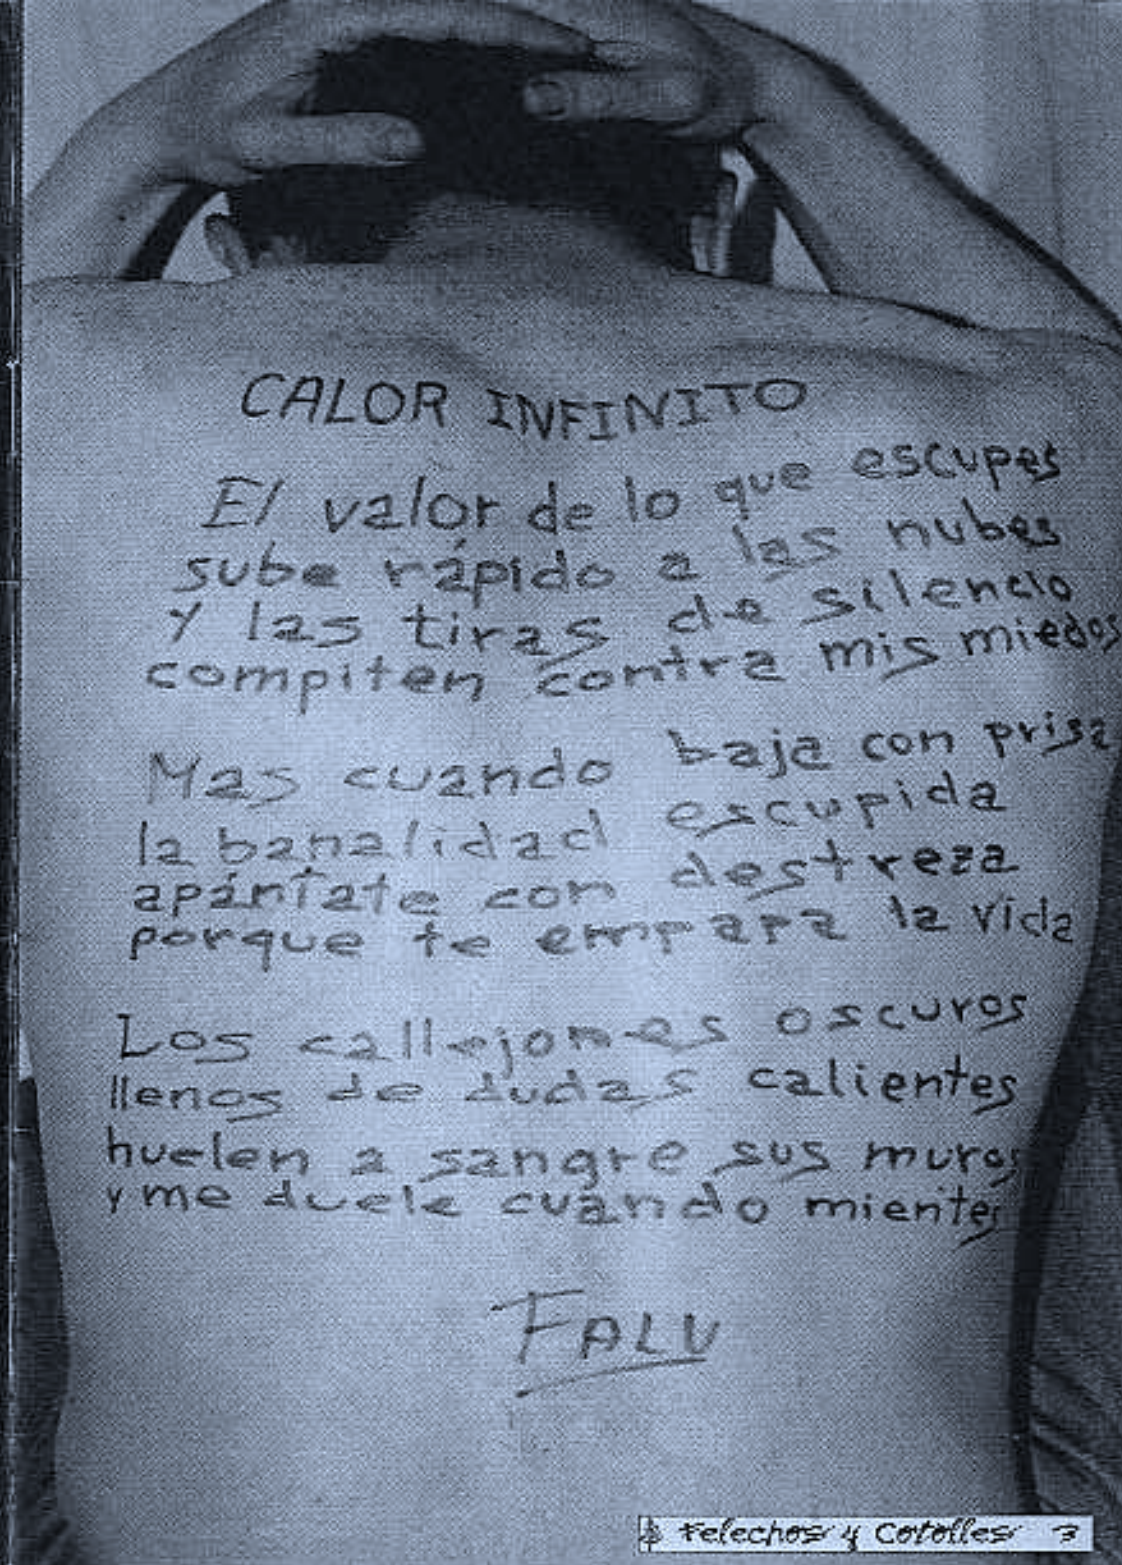 CALOR INFINITO
El valor de lo que escupes
sube rápido a las nubes
y las tiras de silencio
compiten contra mis miedos
Mas cuando baja con prisa
la banalidad escupida
apártate con destreza
porque te empapa la vida
Los callejones oscuros
llenos de dudas calientes
huelen a sangre sus muros
y me duele cuando mientes
FALU
Felechos y Cotolles 3